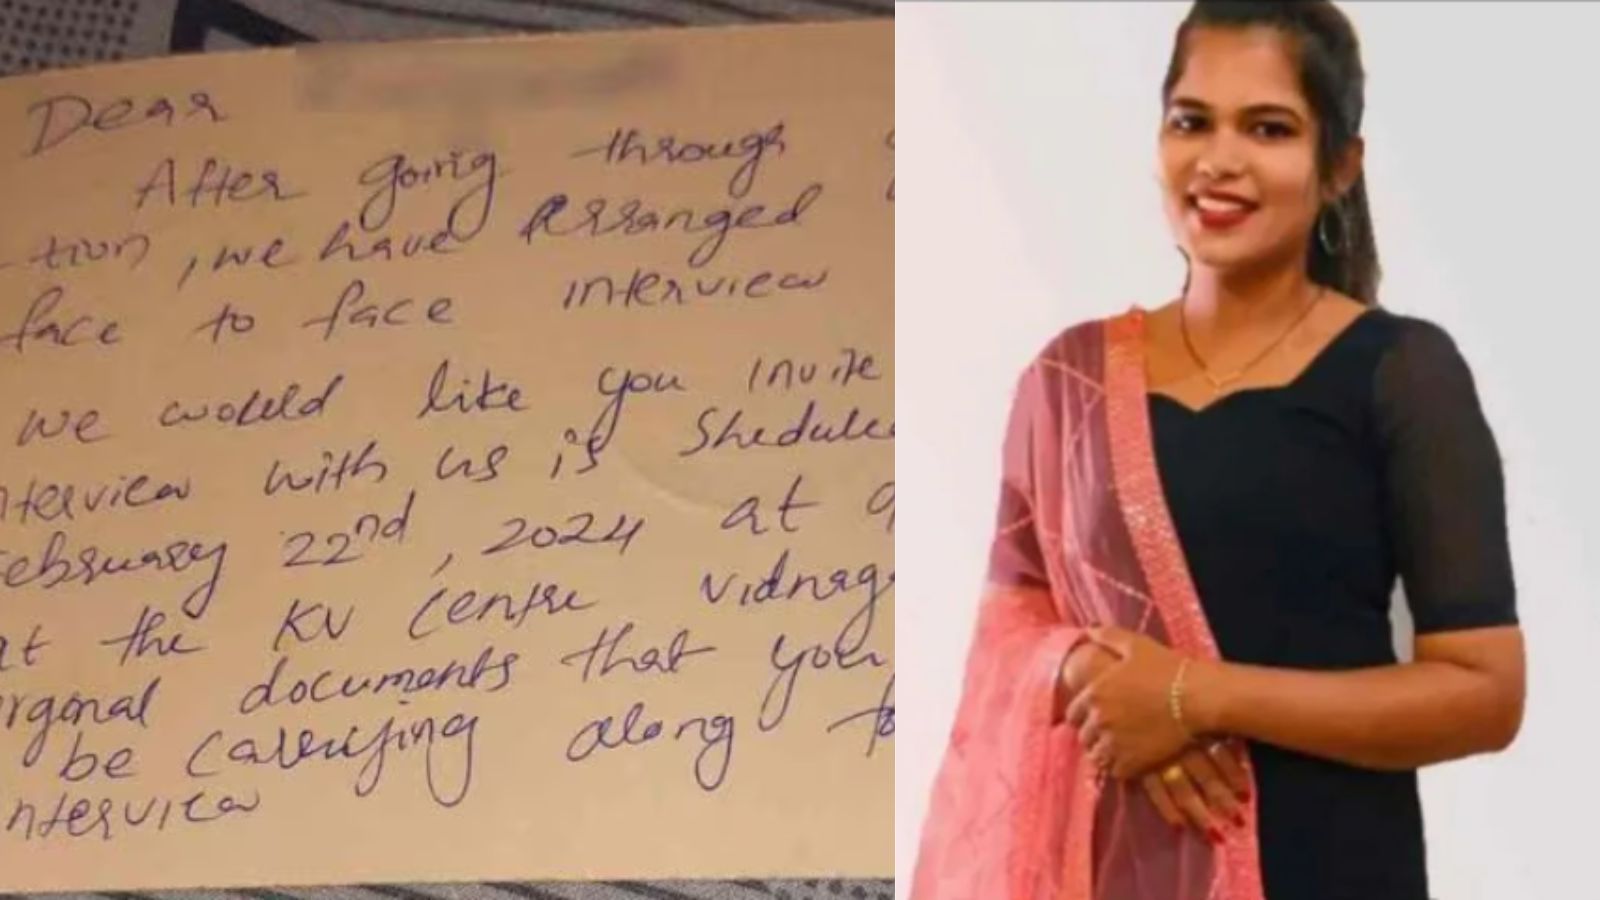 Dear
After going through
tion, we have Arranged
face to face interview
we would like you invite
nterview with us is Shedule
February 22nd, 2024 at 9
at the KV Centre vidnag
rgonal documents that you
be carrying along to
nterview